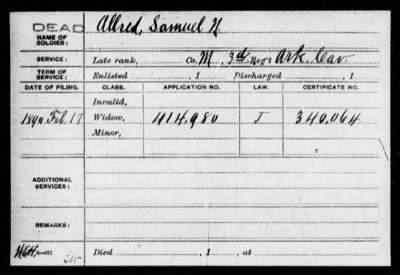 DEAD Allred, Samuel N.
NAME OF SOLDIER:
SERVICE: Late rank, Co. M, 3d Reg't Ark. Cav.
TERM OF SERVICE: Enlisted , 1 Discharged , 1
DATE OF FILING. CLASS. APPLICATION NO. LAW. CERTIFICATE NO.
Invalid,
1890 Feb. 17 Widow, 414,980 J 340,064
Minor,
ADDITIONAL SERVICES:
REMARKS:
Died , 1 , at